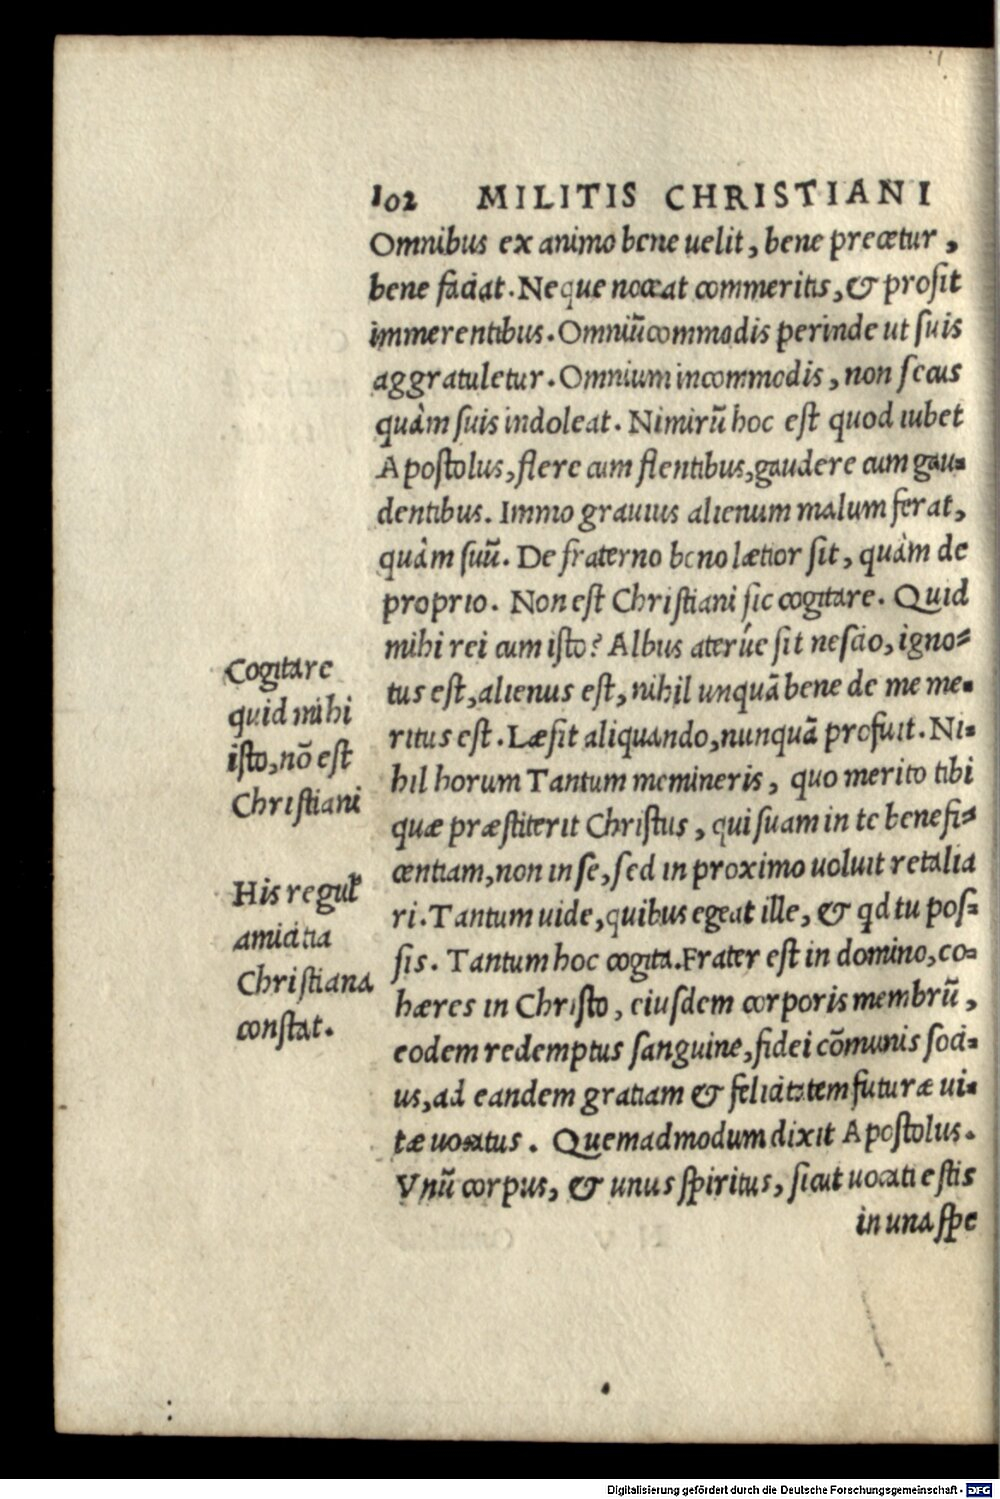 102 MILITIS CHRISTIANI
Omnibus ex animo bene uelit, bene precetur,
bene faciat. Neque noceat commeritis, & prosit
immerentibus. Omniũ commodis perinde ut suis
aggratuletur. Omnium incommodis, non secus
quàm suis indoleat. Nimirũ hoc est quod iubet
Apostolus, flere cum flentibus, gaudere cum gau-
dentibus. Immo grauius alienum malum ferat,
quàm suũ. De fraterno bono lætior sit, quàm de
proprio. Non est Christiani sic cogitare. Quid
mihi rei cum isto? Albus aterúe sit nescio, igno-
tus est, alienus est, nihil unquã bene de me me-
ritus est. Læsit aliquando, nunquã profuit. Ni-
hil horum Tantum memineris, quo merito tibi
quæ præstiterit Christus, qui suam in te benefi-
centiam, non in se, sed in proximo uoluit retalia
ri. Tantum uide, quibus egeat ille, & qd tu pos-
sis. Tantum hoc cogita. Frater est in domino, co-
hæres in Christo, eiusdem corporis membrũ,
eodem redemptus sanguine, fidei cõmunis soci-
us, ad eandem gratiam & felicitatem futuræ ui-
tæ uocatus. Quemadmodum dixit Apostolus.
Vnũ corpus, & unus spiritus, sicut uocati estis
in una spe
Cogitare
quid mihi
isto, nõ est
Christiani
His regul'
amicitia
Christiana
constat.
Digitalisierung gefördert durch die Deutsche Forschungsgemeinschaft - DFG